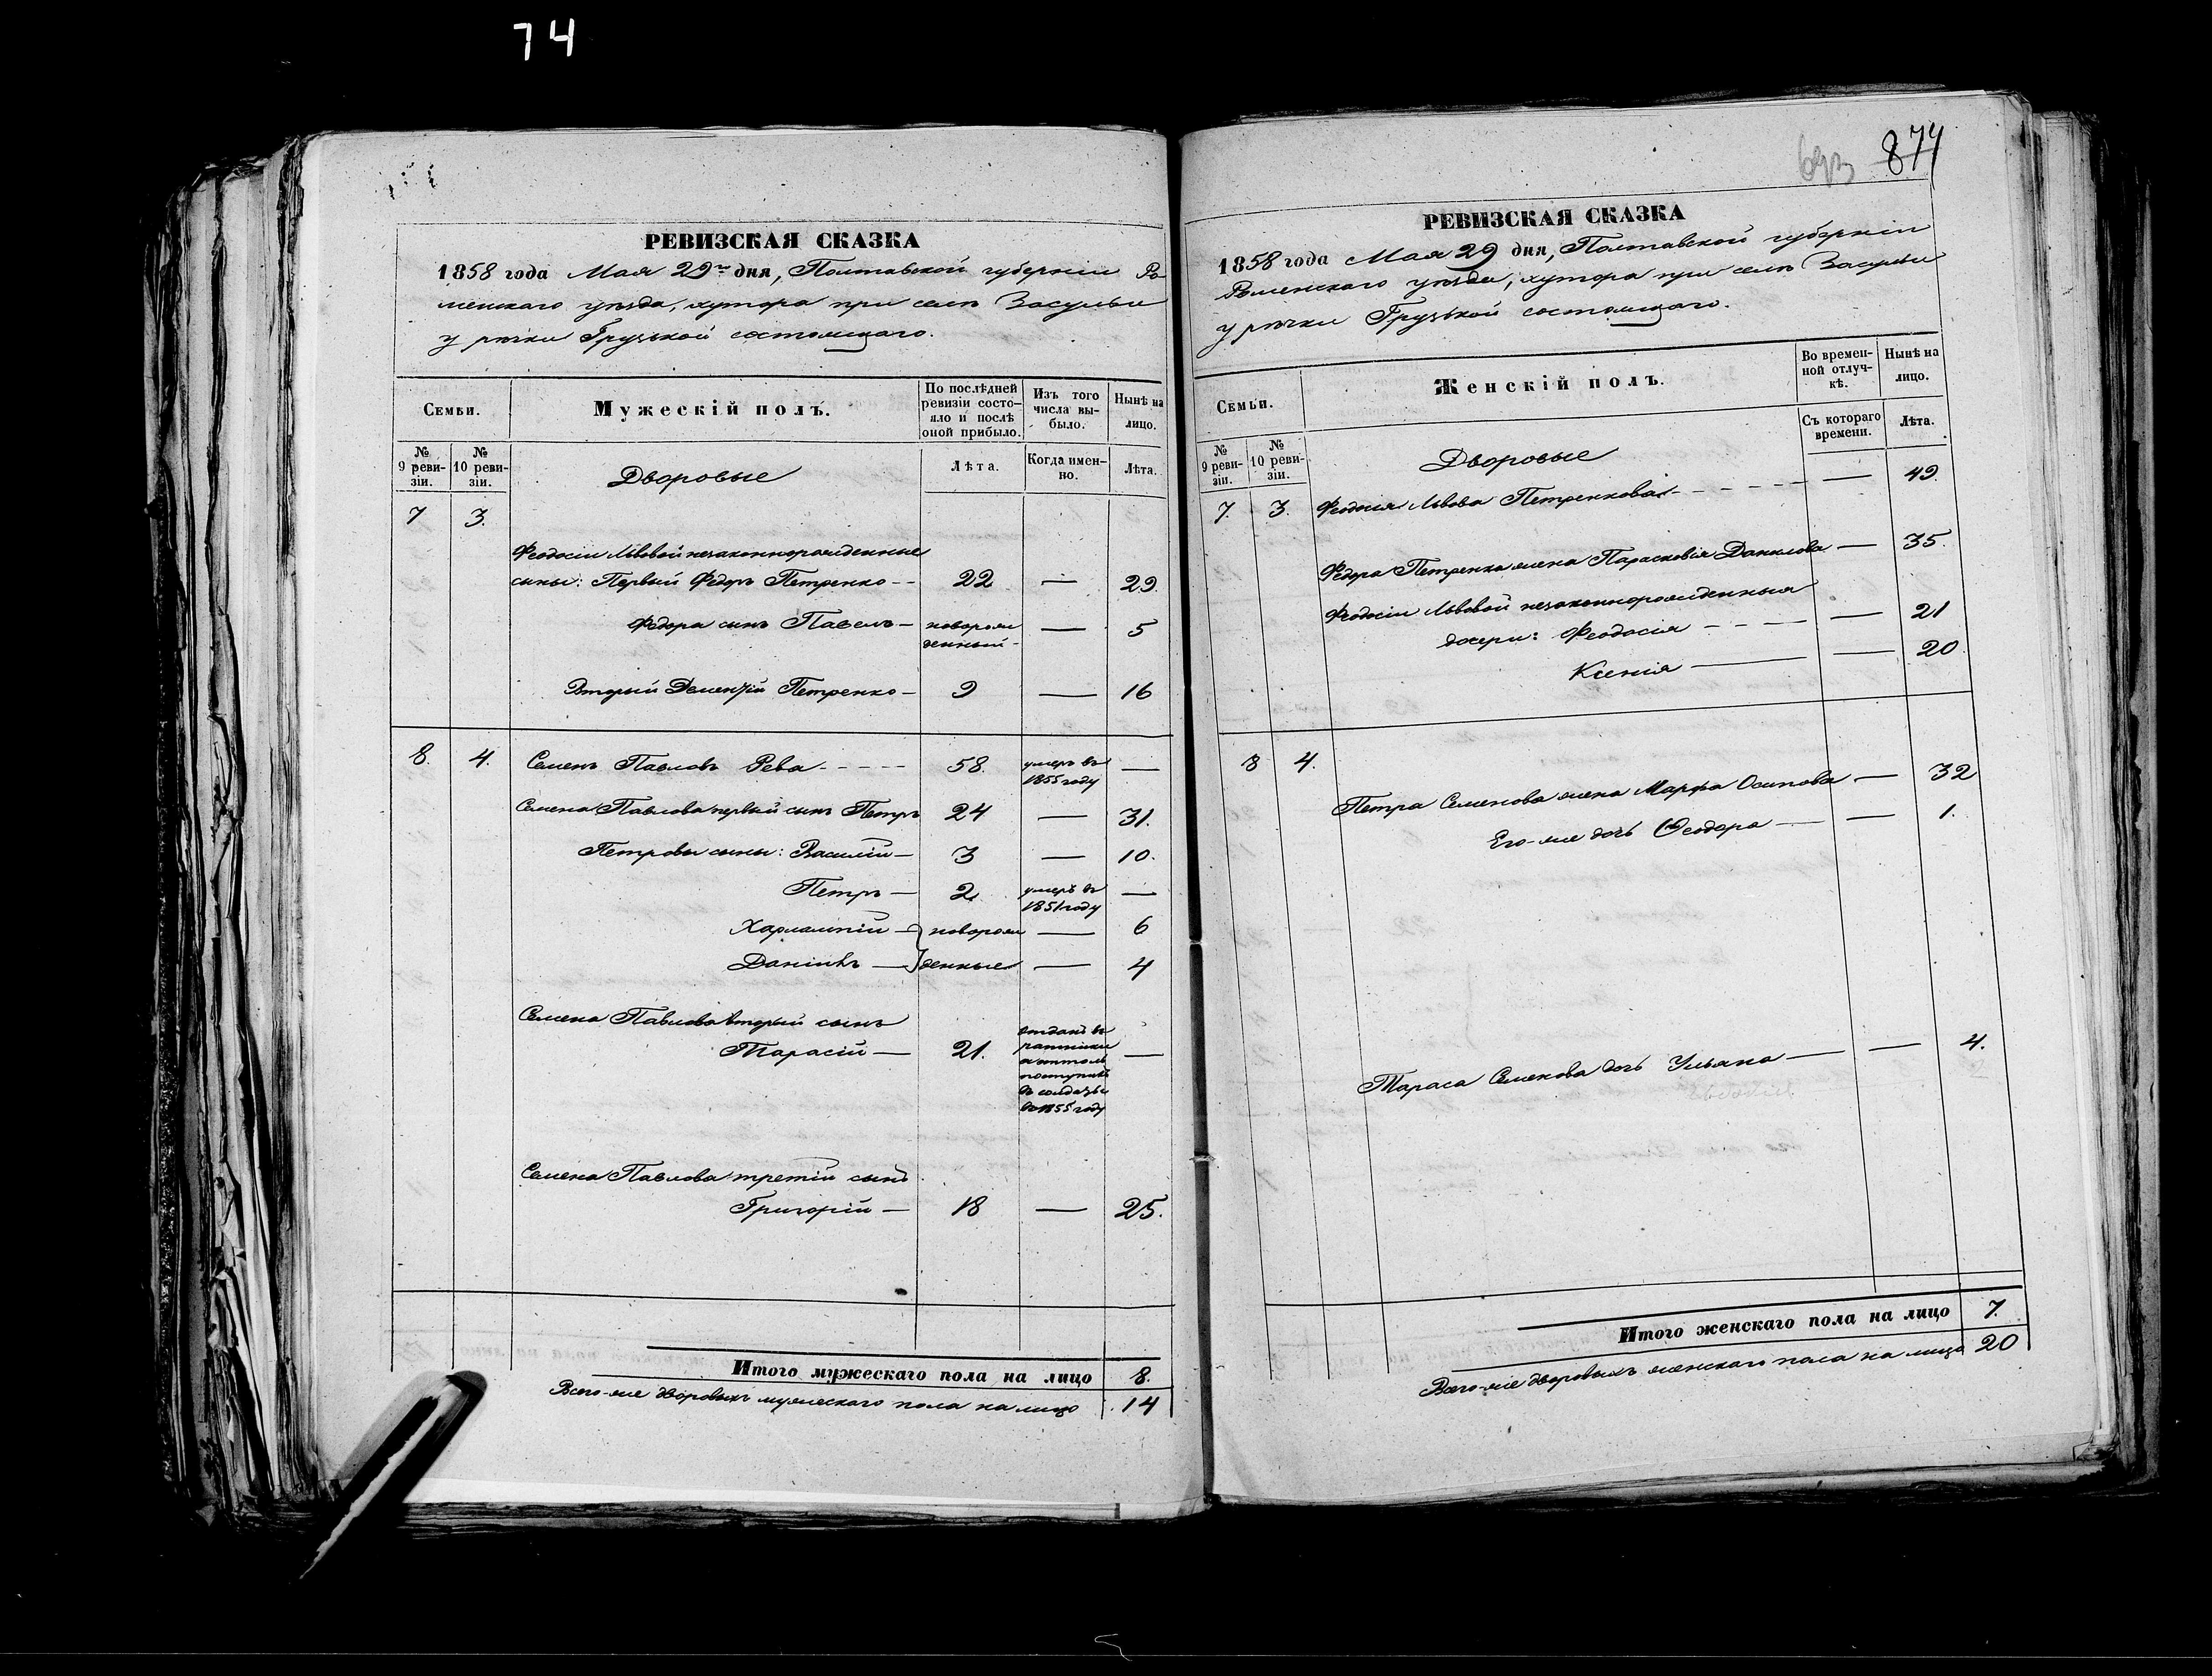 74
РЕВИЗСКАЯ СКАЗКА
1858 года Мая 29го дня, Полтавской губерніи Ро
менскаго уѣзда, хутора при селѣ Засульи
у рѣчки Грузькой состоящаго.
Семьи.
Мужескій полъ.
По послѣдней ревизіи состо-
яло и послѣ оной прибыло.
Изъ того числа вы-
было.
Нынѣ на лицо.
№ 9 реви-
зіи.
№ 10 реви-
зіи.
Дворовые
Лѣта.
Когда имен-
но.
Лѣта.
7 3.
Феодосіи Львовой незаконнорожденные
сыны: Первый Федоръ Петренко - - 22 — 29.
Федора сынъ Павелъ — новорож — 5
денный -
Вторый Дементій Петренко — 9 — 16
8. 4. Семенъ Павловъ Рева - - - - - 58. умеръ въ —
1855 году
Семена Павлова первый сынъ Петръ 24 — 31.
Петровы сыны: Василій — 3 — 10.
Петръ — 2 умеръ въ —
1851 году
Харлампій — новорож — 6
Даніилъ — денные — 4
Семена Павлова вторый сынъ
Тарасій — 21. отданъ въ —
ратники
поступилъ
въ солдаты
въ 1855 году
Семена Павлова третій сынъ
Григорій — 18 — 25.
Итого мужескаго пола на лицо 8.
Всего-же дворовыхъ мужескаго пола на лицо 14
693 874
РЕВИЗСКАЯ СКАЗКА
1858 года Мая 29 дня, Полтавской губерніи
Роменскаго уѣзда, хутора при селѣ Засульи
у рѣчки Грузькой состоящаго.
Семьи.
Женскій полъ.
Во времен-
ной отлуч-
кѣ.
Нынѣ на лицо.
№ 9 реви-
зіи.
№ 10 реви-
зіи.
Дворовые
Съ котораго времени.
Лѣта.
7. 3. Феодосія Львова Петренкова - - - - - — 49.
Федора Петренка жена Парасковія Данилова — 35.
Феодосіи Львовой незаконнорожденныя
дочери: Феодосія - - - - — 21
Ксенія — — 20.
8 4.
Петра Семенова жена Марфа Осипова — 32
Его-же дочь Феодора — — 1.
Тараса Семенова дочь Ульяна — — 4.
Итого женскаго пола на лицо 7.
Всего-же дворовыхъ женскаго пола на лицо 20